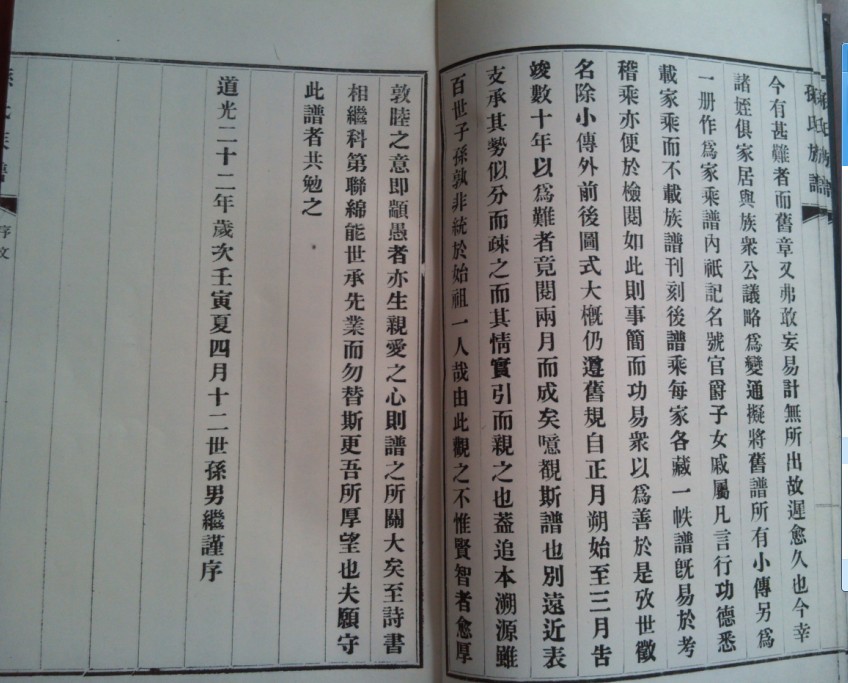 孫氏族譜
今有甚難者而舊章又弗敢妄易計無所出故遲愈久也今幸
諸姪俱家居與族衆公議略爲變通擬將舊譜所有小傳另爲
一册作爲家乘譜內祇記名號官爵子女戚屬凡言行功德悉
載家乘而不載族譜刊刻後譜乘每家各藏一帙譜旣易於考
稽乘亦便於檢閱如此則事簡而功易衆以爲善於是攷世徵
名除小傳外前後圖式大槪仍遵舊規自正月朔始至三月吿
竣數十年以爲難者竟閱兩月而成矣噫覩斯譜也別遠近表
支承其勢似分而疎之而其情實引而親之也葢追本溯源雖
百世子孫孰非統於始祖一人哉由此觀之不惟賢智者愈厚
敦睦之意即顓愚者亦生親愛之心則譜之所關大矣至詩書
相繼科第聯綿能世承先業而勿替斯更吾所厚望也夫願守
此譜者共勉之
道光二十二年歲次壬寅夏四月十二世孫男繼謹序
氏族譜
序文